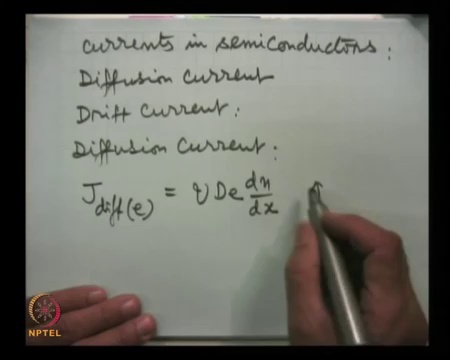 Currents in semiconductors:
Diffusion Current
Drift Current:
Diffusion Current:
J diff(e) = q De dn/dx
NPTEL